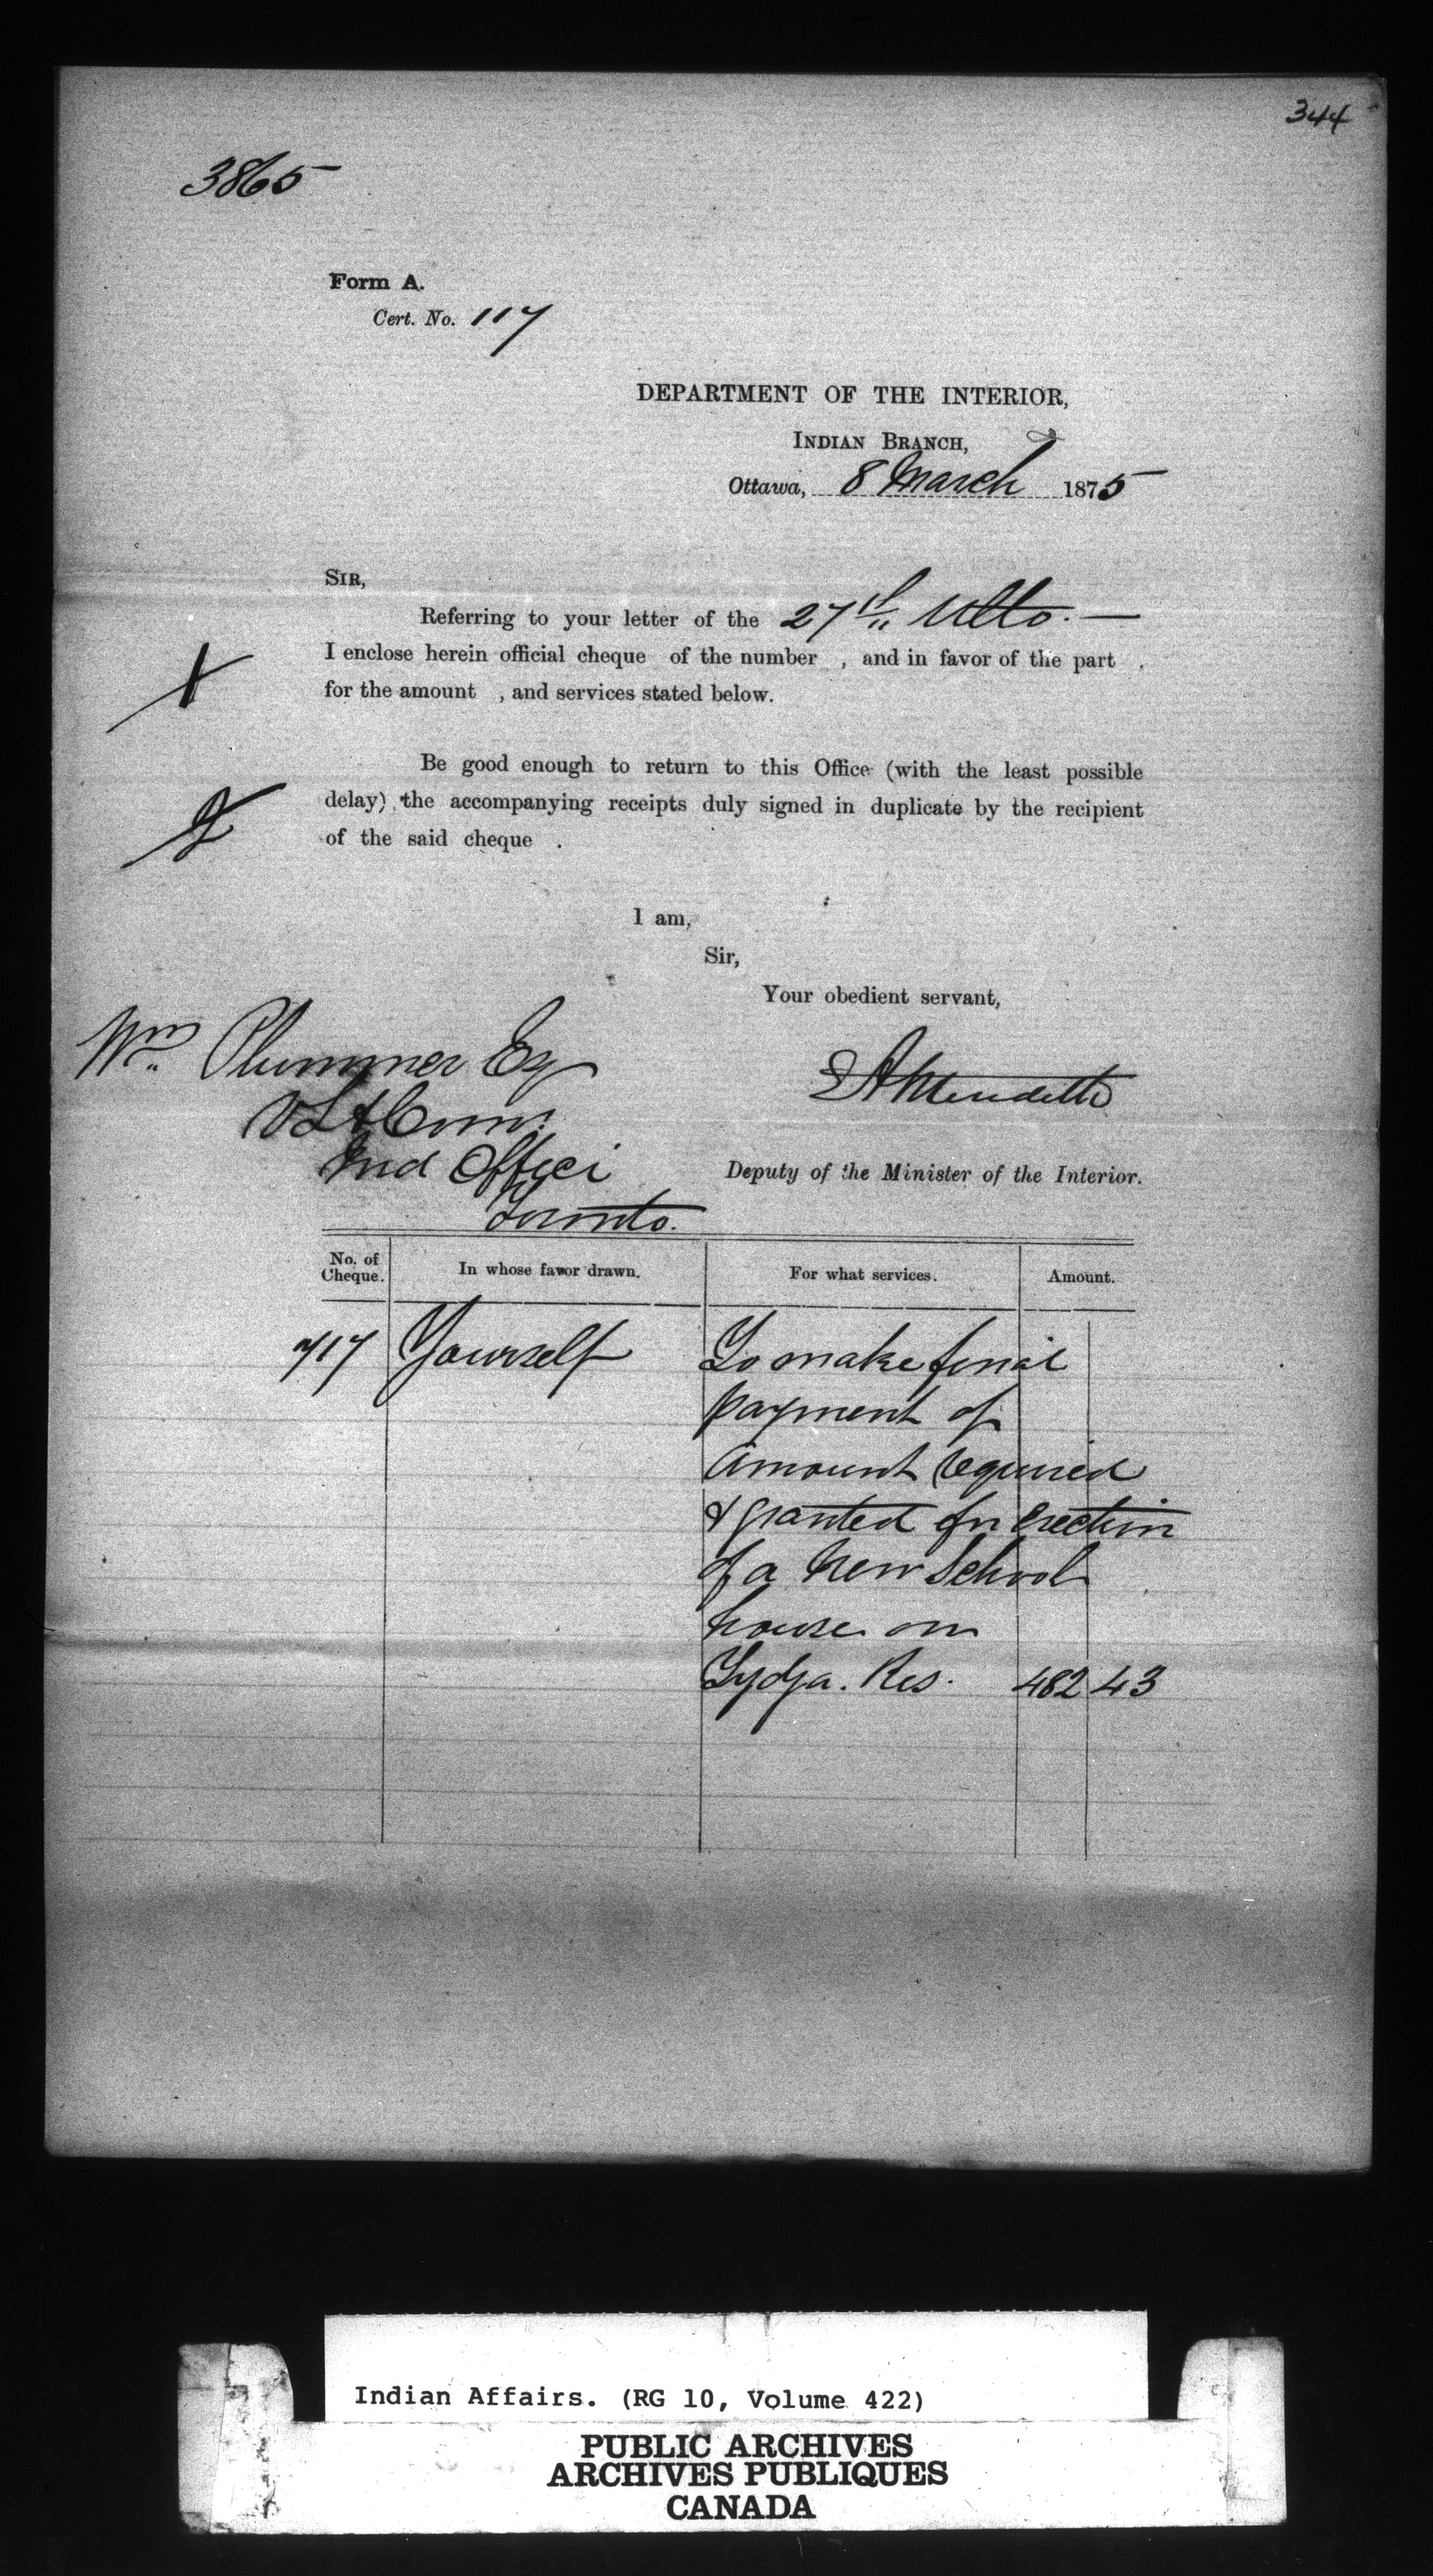 344
3865
Form A.
Cert. No. 117
DEPARTMENT OF THE INTERIOR,
INDIAN BRANCH,
Ottawa, 8 March 1875
SIR,
Referring to your letter of the 27th Ulto. —
I enclose herein official cheque of the number , and in favor of the part ,
for the amount , and services stated below.
Be good enough to return to this Office (with the least possible
delay) the accompanying receipts duly signed in duplicate by the recipient
of the said cheque .
I am,
Sir,
Your obedient servant,
Wm. Plummer Esq
EA Meredith
Ind Office
Toronto.
Deputy of the Minister of the Interior.
No. of Cheque. In whose favor drawn. For what services. Amount.
717 Yourself To make final
payment of
Amount required
& granted for Erection
of a New School
house on
Tydga. Res. 482 43
Indian Affairs. (RG 10, Volume 422)
PUBLIC ARCHIVES
ARCHIVES PUBLIQUES
CANADA